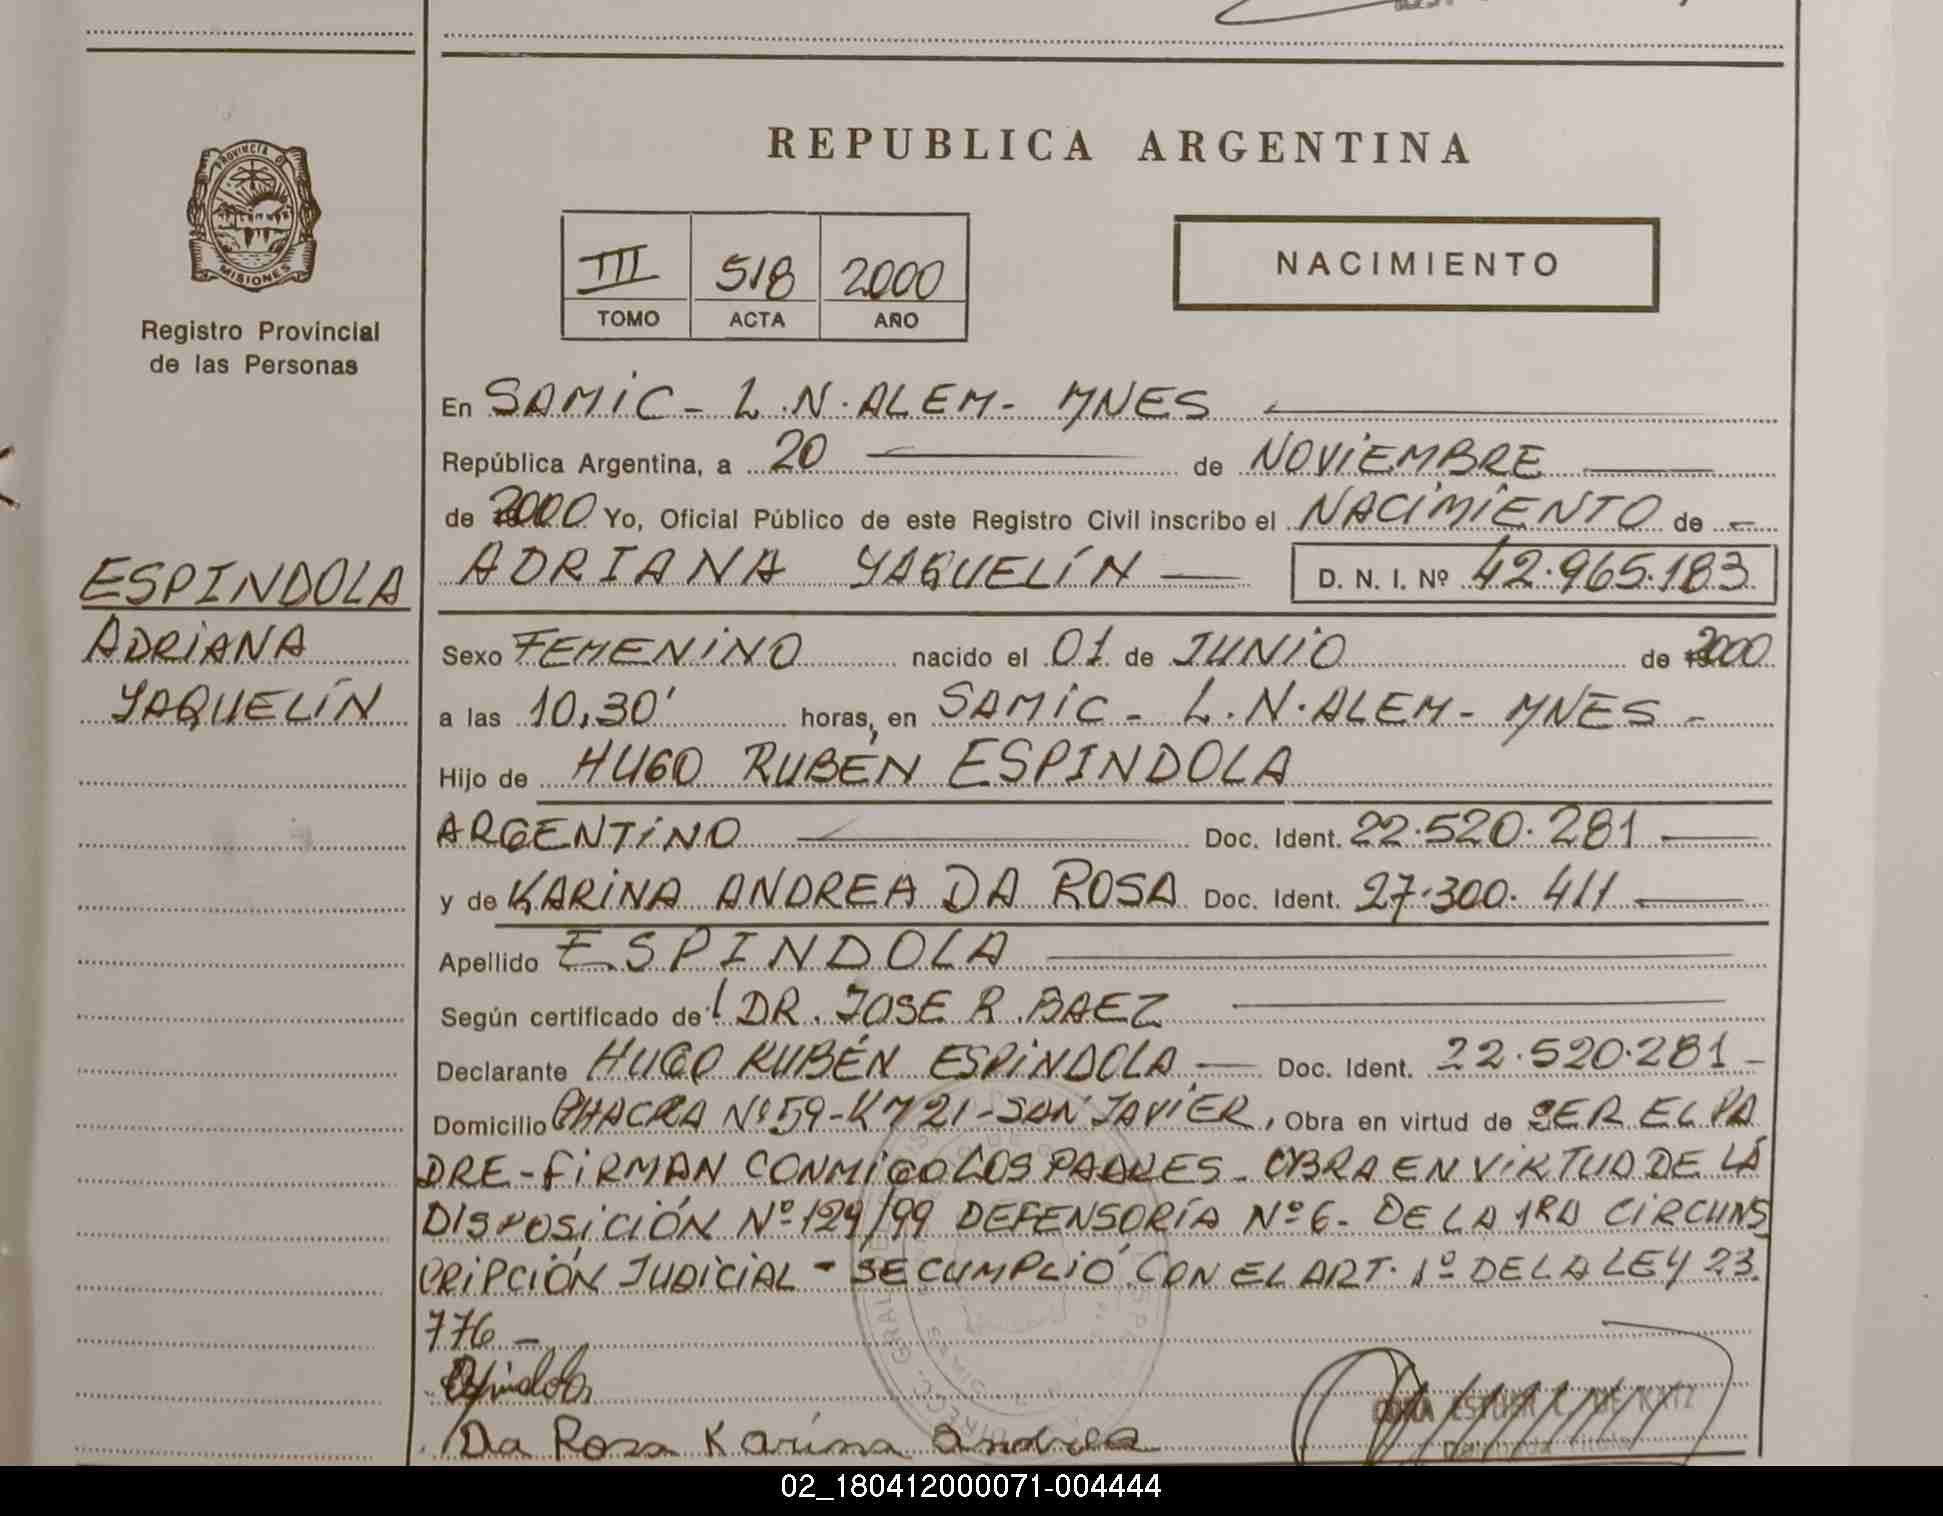 REPUBLICA ARGENTINA
PROVINCIA DE
MISIONES
Registro Provincial
de las Personas
III 518 2000
TOMO ACTA AÑO
NACIMIENTO
En SAMIC - L.N. ALEM - MNES
República Argentina, a 20 de NOVIEMBRE
de 2000 Yo, Oficial Público de este Registro Civil inscribo el NACIMIENTO de
ADRIANA YAQUELÍN D. N. I. Nº 42.965.183
ESPINDOLA
ADRIANA
YAQUELÍN
Sexo FEMENINO nacido el 01 de JUNIO de 2000
a las 10,30' horas, en SAMIC - L.N. ALEM - MNES -
Hijo de HUGO RUBÉN ESPINDOLA
ARGENTINO Doc. Ident. 22.520.281
y de KARINA ANDREA DA ROSA Doc. Ident. 27.300.411
Apellido ESPINDOLA
Según certificado de l DR. JOSE R. BAEZ
Declarante HUGO RUBÉN ESPINDOLA Doc. Ident. 22.520.281 -
Domicilio CHACRA Nº 59 - KM 21 - SAN JAVIER, Obra en virtud de SER EL PA
DRE - FIRMAN CONMIGO LOS PADRES - OBRA EN VIRTUD DE LA
DISPOSICIÓN Nº 129/99 DEFENSORÍA Nº 6 - DE LA 1RA CIRCUNS
CRIPCIÓN JUDICIAL - SE CUMPLIÓ CON EL ART. 1º DE LA LEY 23.
776 -
Espindola
Da Rosa Karina Andrea
02_180412000071-004444